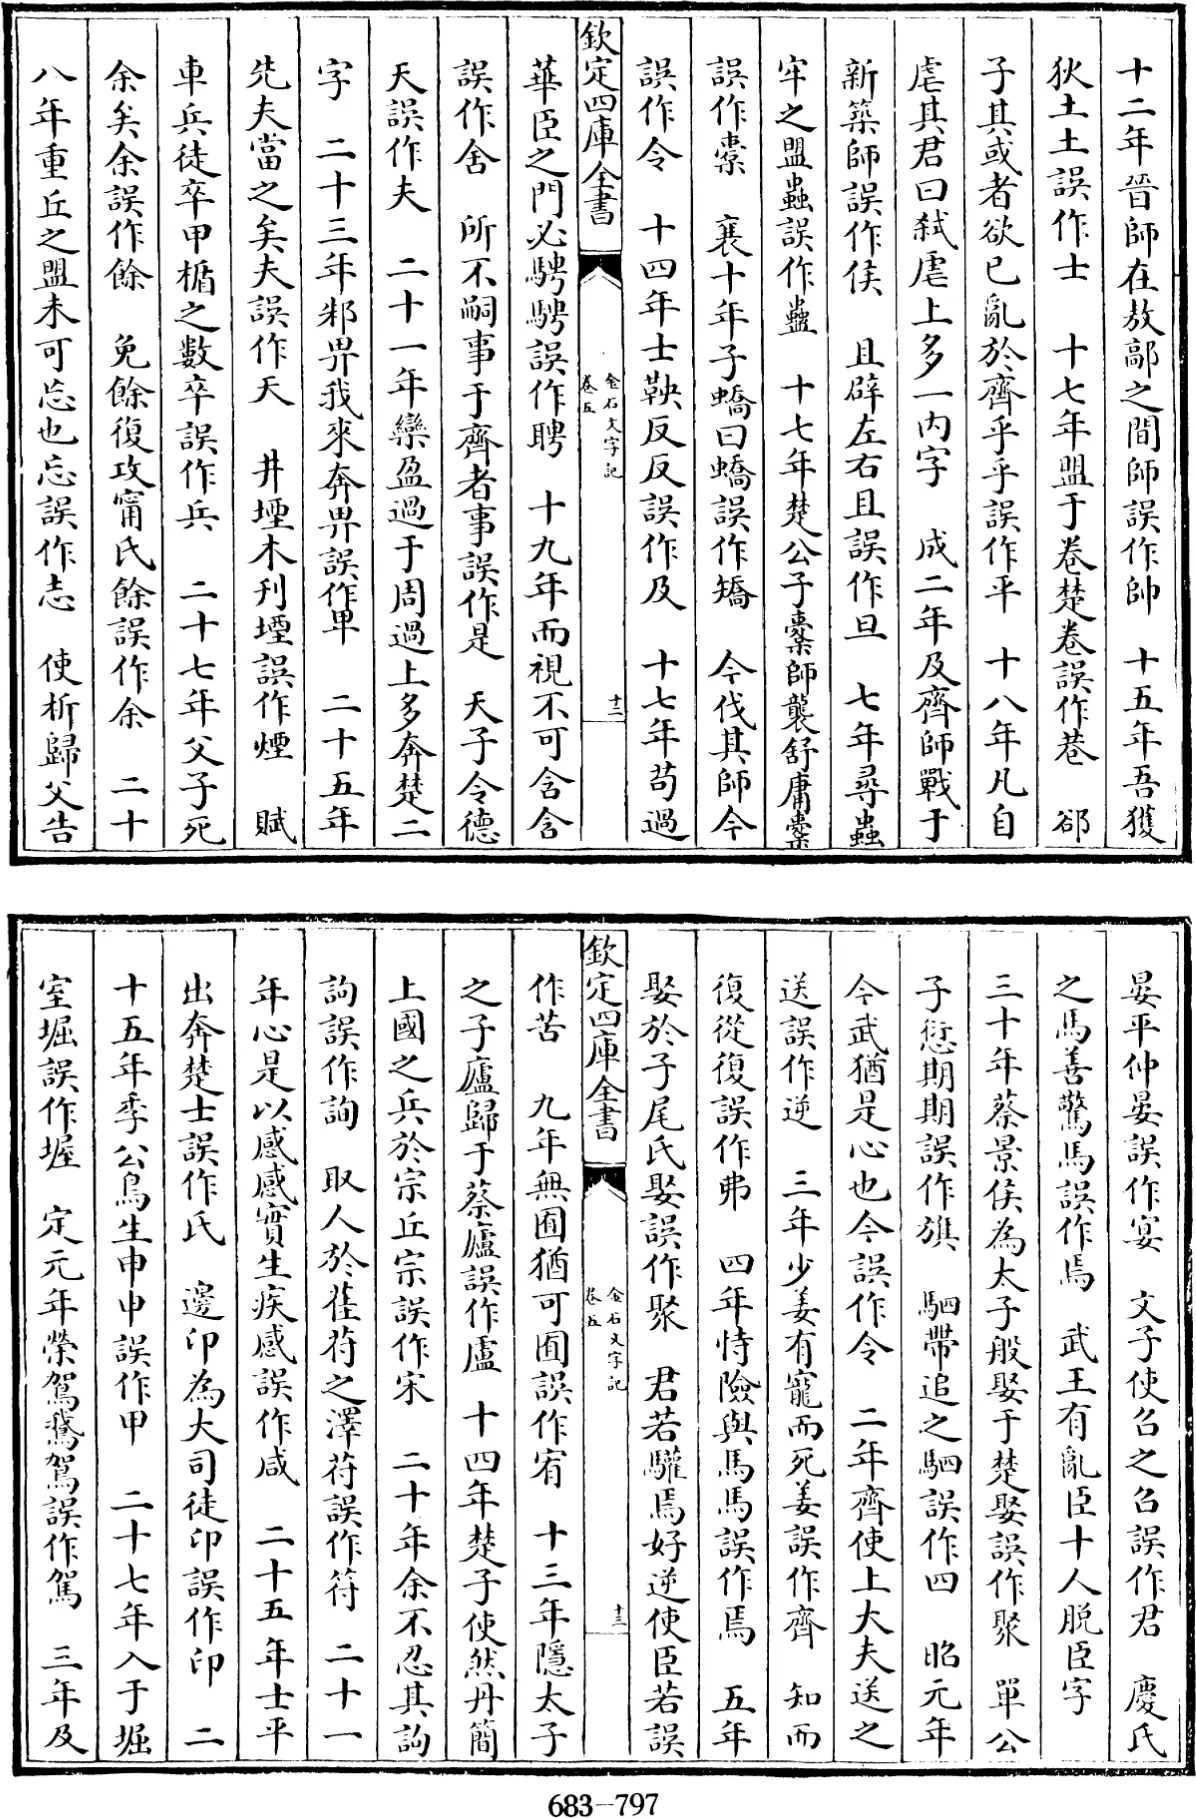 十二年晉師在敖鄗之間師誤作帥　十五年吾獲
狄土土誤作士　十七年盟于卷楚卷誤作巷　郤
子其或者欲已亂於齊乎乎誤作平　十八年凡自
虐其君曰弑虐上多一内字　成二年及齊師戰于
新築師誤作侯　且辟左右且誤作旦　七年尋蟲
牢之盟蟲誤作蠱　十七年楚公子櫜師襲舒庸櫜
誤作橐　襄十年子蟜曰蟜誤作矯　今伐其師今
誤作令　十四年士鞅反反誤作及　十七年苟過
欽定四庫全書
金石文字記
卷五
十二
華臣之門必騁騁誤作聘　十九年而視不可含含
誤作舍　所不嗣事于齊者事誤作是　天子令德
天誤作夫　二十一年欒盈過于周過上多奔楚二
字　二十三年邾畀我來奔畀誤作卑　二十五年
先夫當之矣夫誤作天　井堙木刋堙誤作煙　賦
車兵徒卒甲楯之數卒誤作兵　二十七年父子死
余矣余誤作餘　免餘復攻甯氏餘誤作余　二十
八年重丘之盟未可忘也忘誤作志　使析歸父告
晏平仲晏誤作宴　文子使召之召誤作君　慶氏
之馬善驚馬誤作焉　武王有亂臣十人脱臣字
三十年蔡景侯為太子般娶于楚娶誤作聚　單公
子愆期期誤作旗　駟帶追之駟誤作四　昭元年
今武猶是心也今誤作令　二年齊使上大夫送之
送誤作逆　三年少姜有寵而死姜誤作齊　知而
復從復誤作弗　四年恃險與馬馬誤作焉　五年
娶於子尾氏娶誤作聚　君若驩焉好逆使臣若誤
欽定四庫全書
金石文字記
卷五
十三
作苦　九年無囿猶可囿誤作宥　十三年隱太子
之子廬歸于蔡廬誤作盧　十四年楚子使然丹簡
上國之兵於宗丘宗誤作宋　二十年余不忍其訽
訽誤作詢　取人於萑苻之澤苻誤作符　二十一
年心是以感感實生疾感誤作咸　二十五年士平
出奔楚士誤作氏　邊卬為大司徒卬誤作印　二
十五年季公鳥生申申誤作甲　二十七年入于堀
室堀誤作堀　定元年榮駕鵞駕誤作駕　三年及
683—797